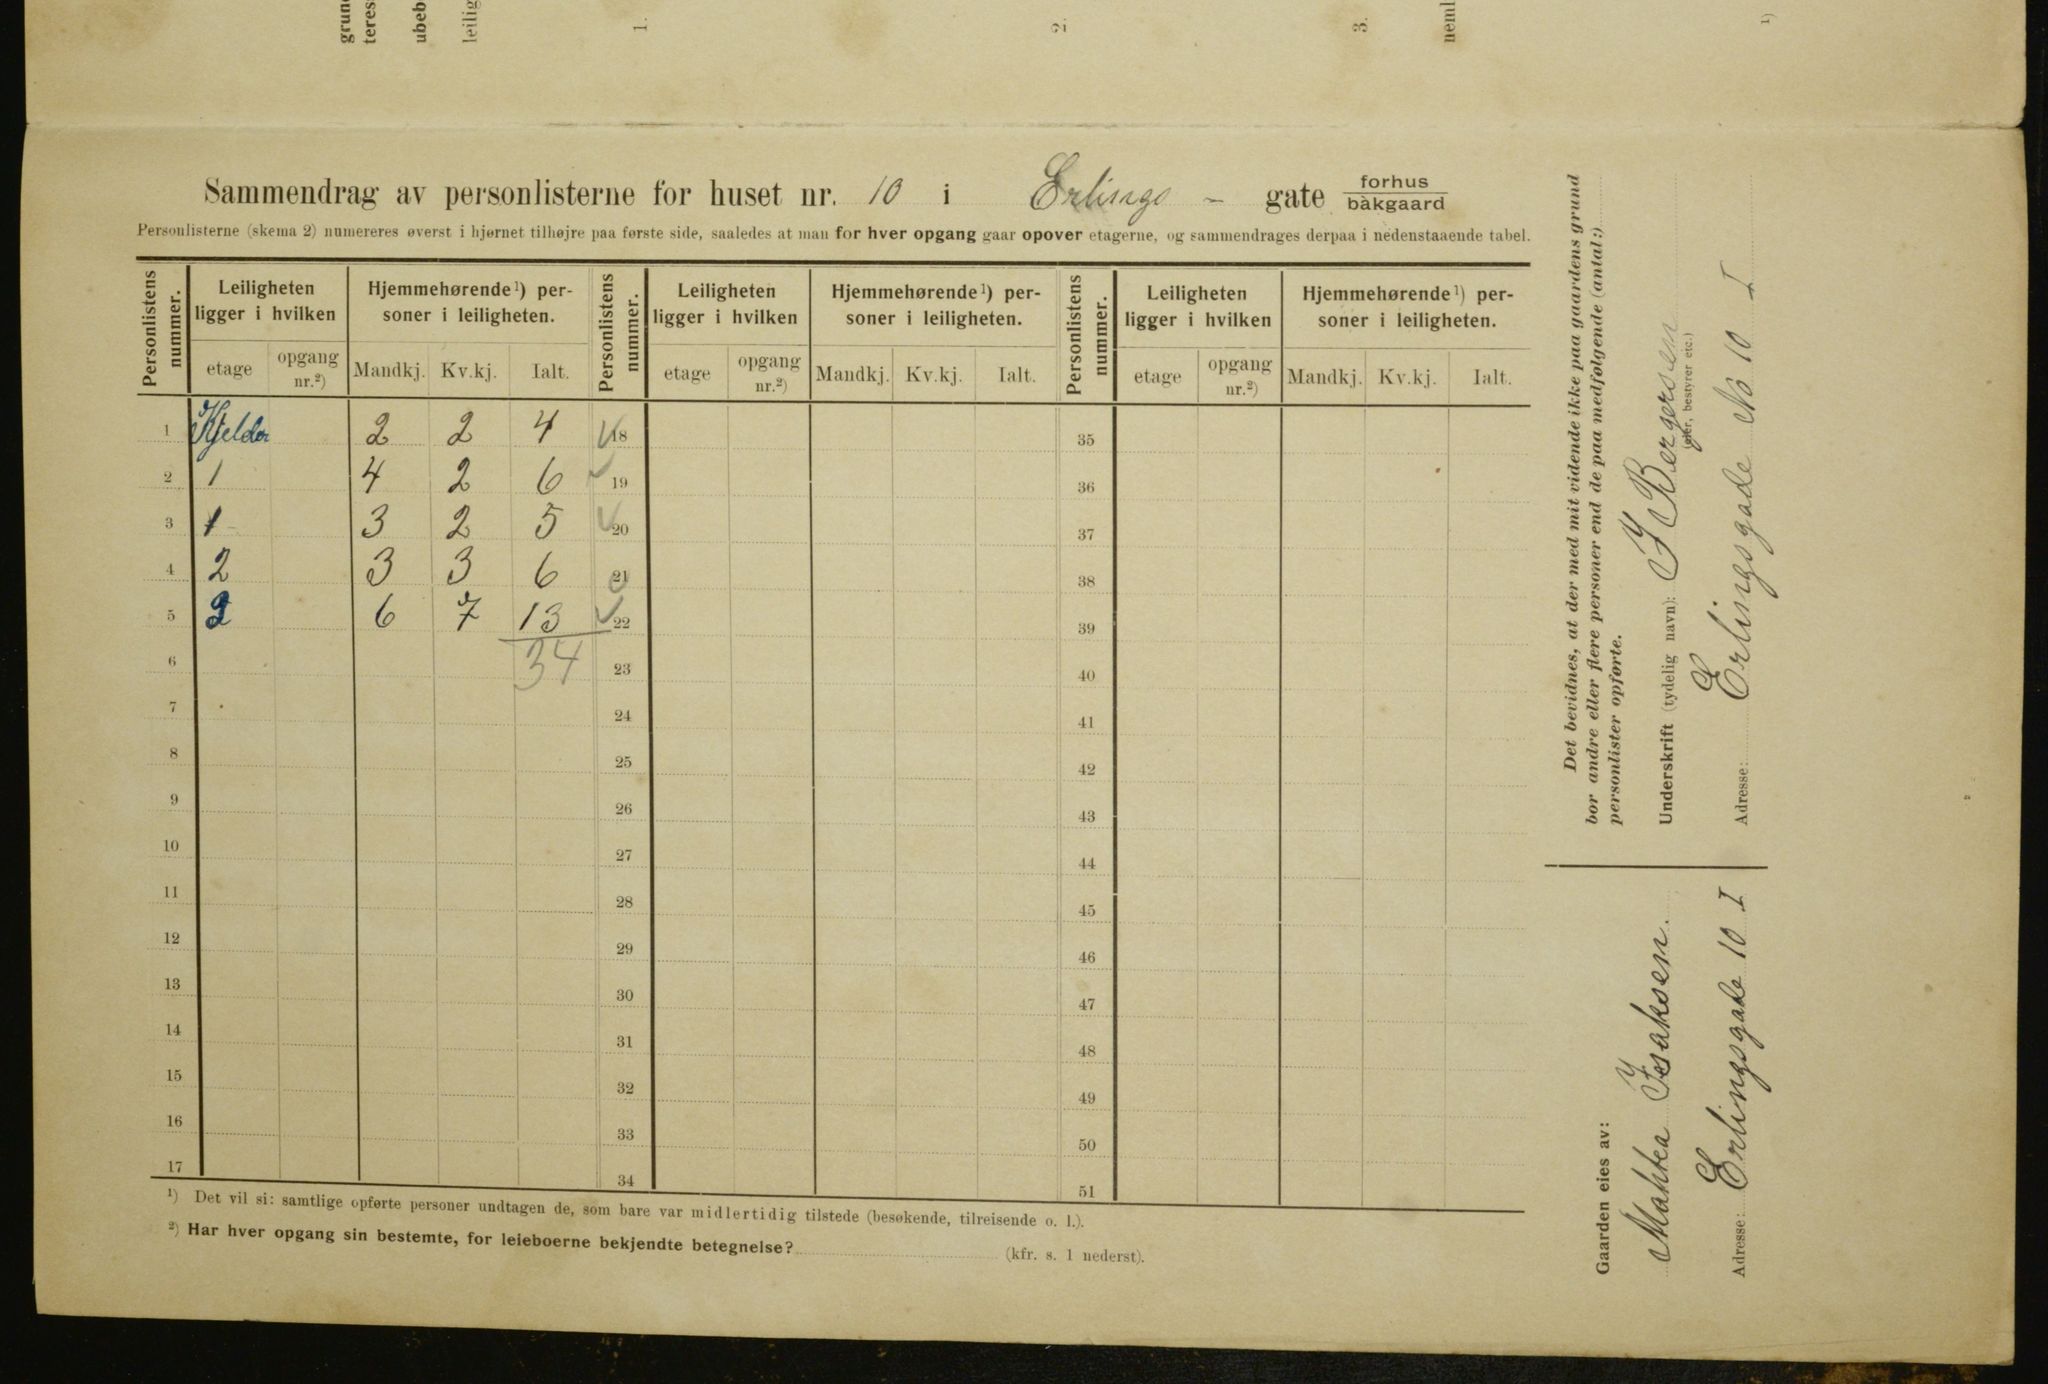 grun
teres
ubeb
leilig
1.
2.
3.
neml
1)
Sammendrag av personlisterne for huset nr. 10 i Erlings - gate forhus
bakgaard
Personlisterne (skema 2) numereres øverst i hjørnet tilhøjre paa første side, saaledes at man for hver opgang gaar opover etagerne, og sammendrages derpaa i nedenstaaende tabel.
Personlistens nummer. Leiligheten ligger i hvilken Hjemmehørende¹) personer i leiligheten. Personlistens nummer. Leiligheten ligger i hvilken Hjemmehørende¹) personer i leiligheten. Personlistens nummer. Leiligheten ligger i hvilken Hjemmehørende¹) personer i leiligheten.
etage opgang nr.²) Mandkj. Kv.kj. Ialt. etage opgang nr.²) Mandkj. Kv.kj. Ialt. etage opgang nr.²) Mandkj. Kv.kj. Ialt.
1 Kjelder 2 2 4 18 35
2 1 4 2 6 19 36
3 1 3 2 5 20 37
4 2 3 3 6 21 38
5 2 6 7 13 22 39
6 34 23 40
7 24 41
8 25 42
9 26 43
10 27 44
11 28 45
12 29 46
13 30 47
14 31 48
15 32 49
16 33 50
17 34 51
¹) Det vil si: samtlige opførte personer undtagen de, som bare var midlertidig tilstede (besøkende, tilreisende o. l.).
²) Har hver opgang sin bestemte, for leieboerne bekjendte betegnelse? (kfr. s. 1 nederst).
Det bevidnes, at der med mit vidende ikke paa gaardens grund
bor andre eller flere personer end de paa medfølgende (antal:)
personlister opførte.
Underskrift (tydelig navn): I Bergersen
(eier, bestyrer etc.)
Adresse: Erlingsgade No 10 I
Gaarden eies av:
Mahtea Isaksen.
Adresse: Erlingsgade 10 I